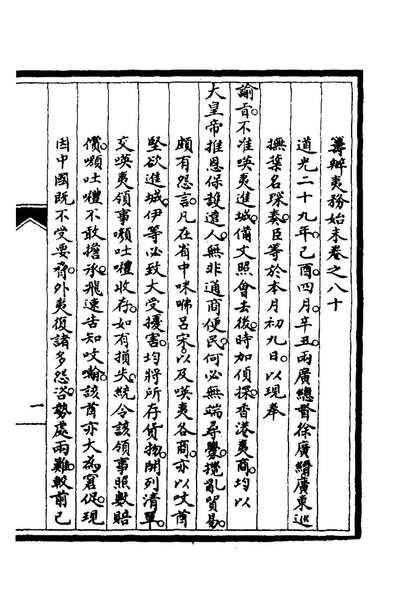 籌辦夷務始末卷之八十
道光二十九年己酉四月。辛丑。兩廣總督徐廣縉廣東巡
撫葉名琛奏。臣等於本月初九日。以現奉
諭旨。不准𠸄夷進城。備文照會去後。時加偵探。香港夷商。均以
大皇帝推恩保護遠人。無非通商便民。何必無端尋釁。攪亂貿易。
頗有怨言。凡在省中咪咈呂宋。以及𠸄夷各商。亦以咬酋
堅欲進城。伊等必致大受擾害。均將所存貨物。開列清單。
交𠸄夷領事𠿝吐𡂝收存。如有損失。統令該領事照數賠
償。𠿝吐𡂝不敢擔承。飛速告知咬𠺕。該酋亦大為窘促。現
因中國既不受要脅。外夷復諸多怨咨。勢處兩難。較前已
一